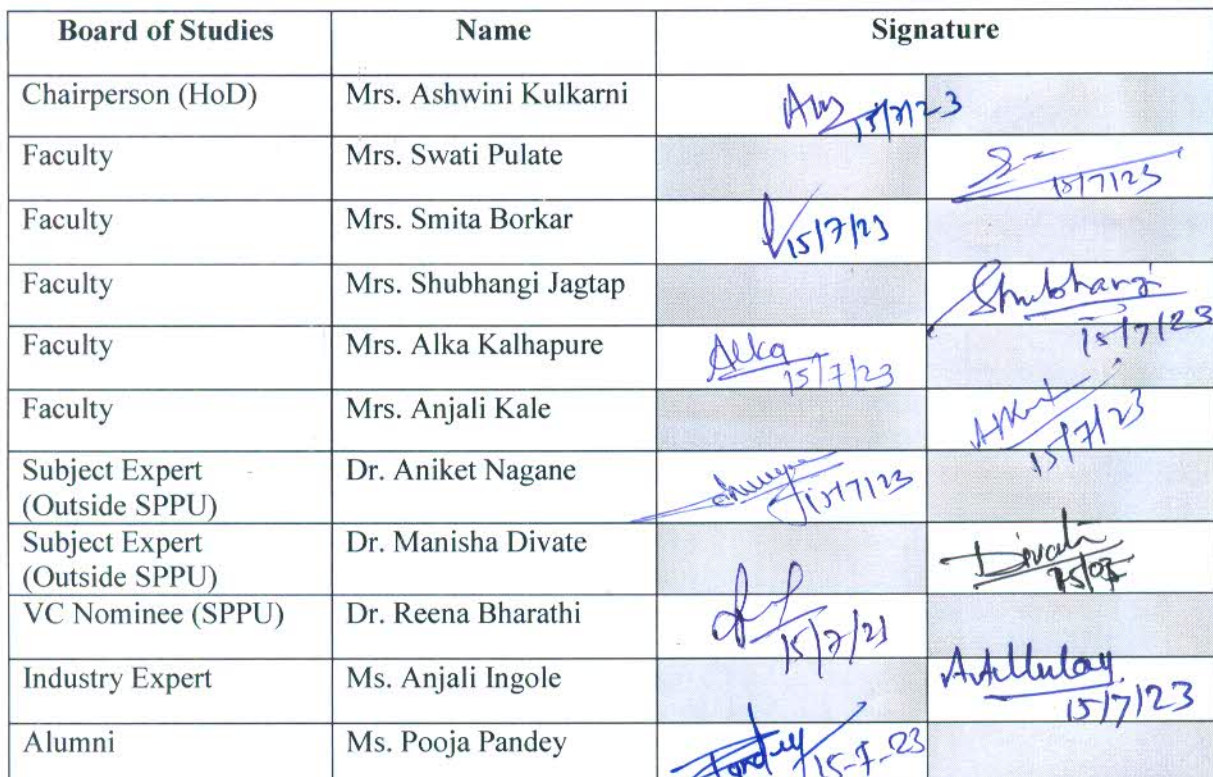 Board of Studies Name Signature
Chairperson (HoD) Mrs. Ashwini Kulkarni 15/7/23
Faculty Mrs. Swati Pulate 15/7/23
Faculty Mrs. Smita Borkar 15/7/23
Faculty Mrs. Shubhangi Jagtap Shubhangi
15/7/23
Faculty Mrs. Alka Kalhapure Alka
15/7/23
Faculty Mrs. Anjali Kale
15/7/23
Subject Expert Dr. Aniket Nagane 15/7/23
(Outside SPPU)
Subject Expert Dr. Manisha Divate
(Outside SPPU)
VC Nominee (SPPU) Dr. Reena Bharathi
Industry Expert Ms. Anjali Ingole
15/7/23
Alumni Ms. Pooja Pandey 15-7-23